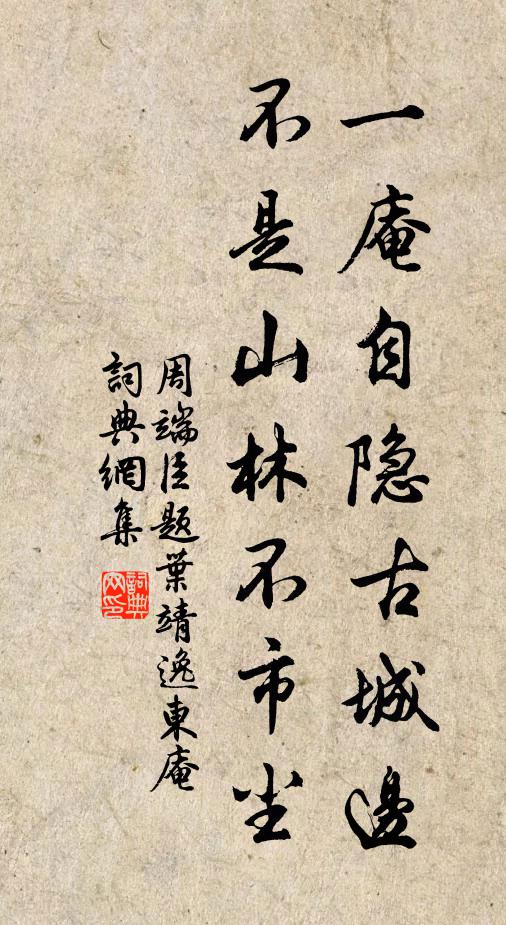 一庵自隐古城邊
不是山林不市尘
周端臣题葉靖逸東庵
詞典網集
詞典网印